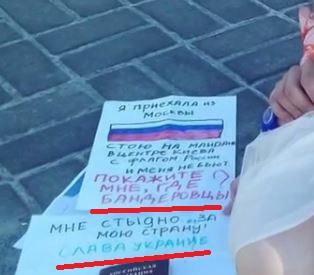 Я ПРИЕХАЛА ИЗ
МОСКВЫ
СТОЮ НА МАЙДАНЕ
В ЦЕНТРЕ КИЕВА
С ФЛАГОМ РОССИИ
И МЕНЯ НЕ БЬЮТ.
ПОКАЖИТЕ
МНЕ, ГДЕ
БАНДЕРОВЦЫ?
МНЕ СТЫДНО ЗА
МОЮ СТРАНУ!
СЛАВА УКРАИНЕ
РОССИЙСКАЯ